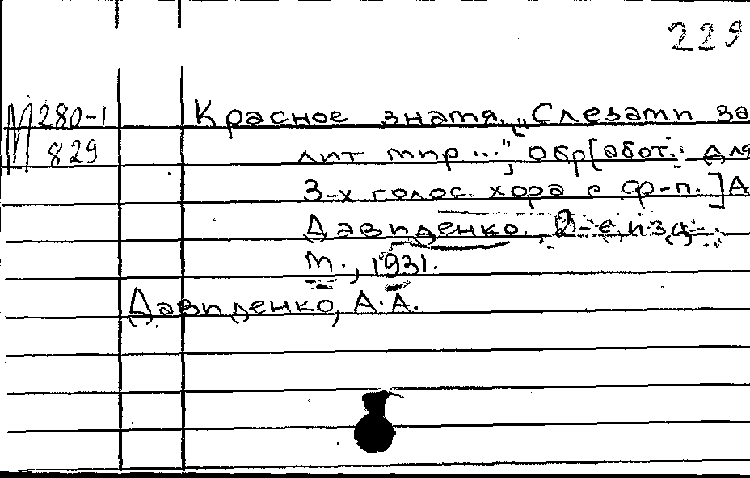 229
М 280-1 Красное знамя. „Слезами за
829 лит мир...", обр[абот. для
3-х голос. хора с ф-п.] А
Давиденко. 2-е изд.
М., 1931.
Давиденко, А.А.